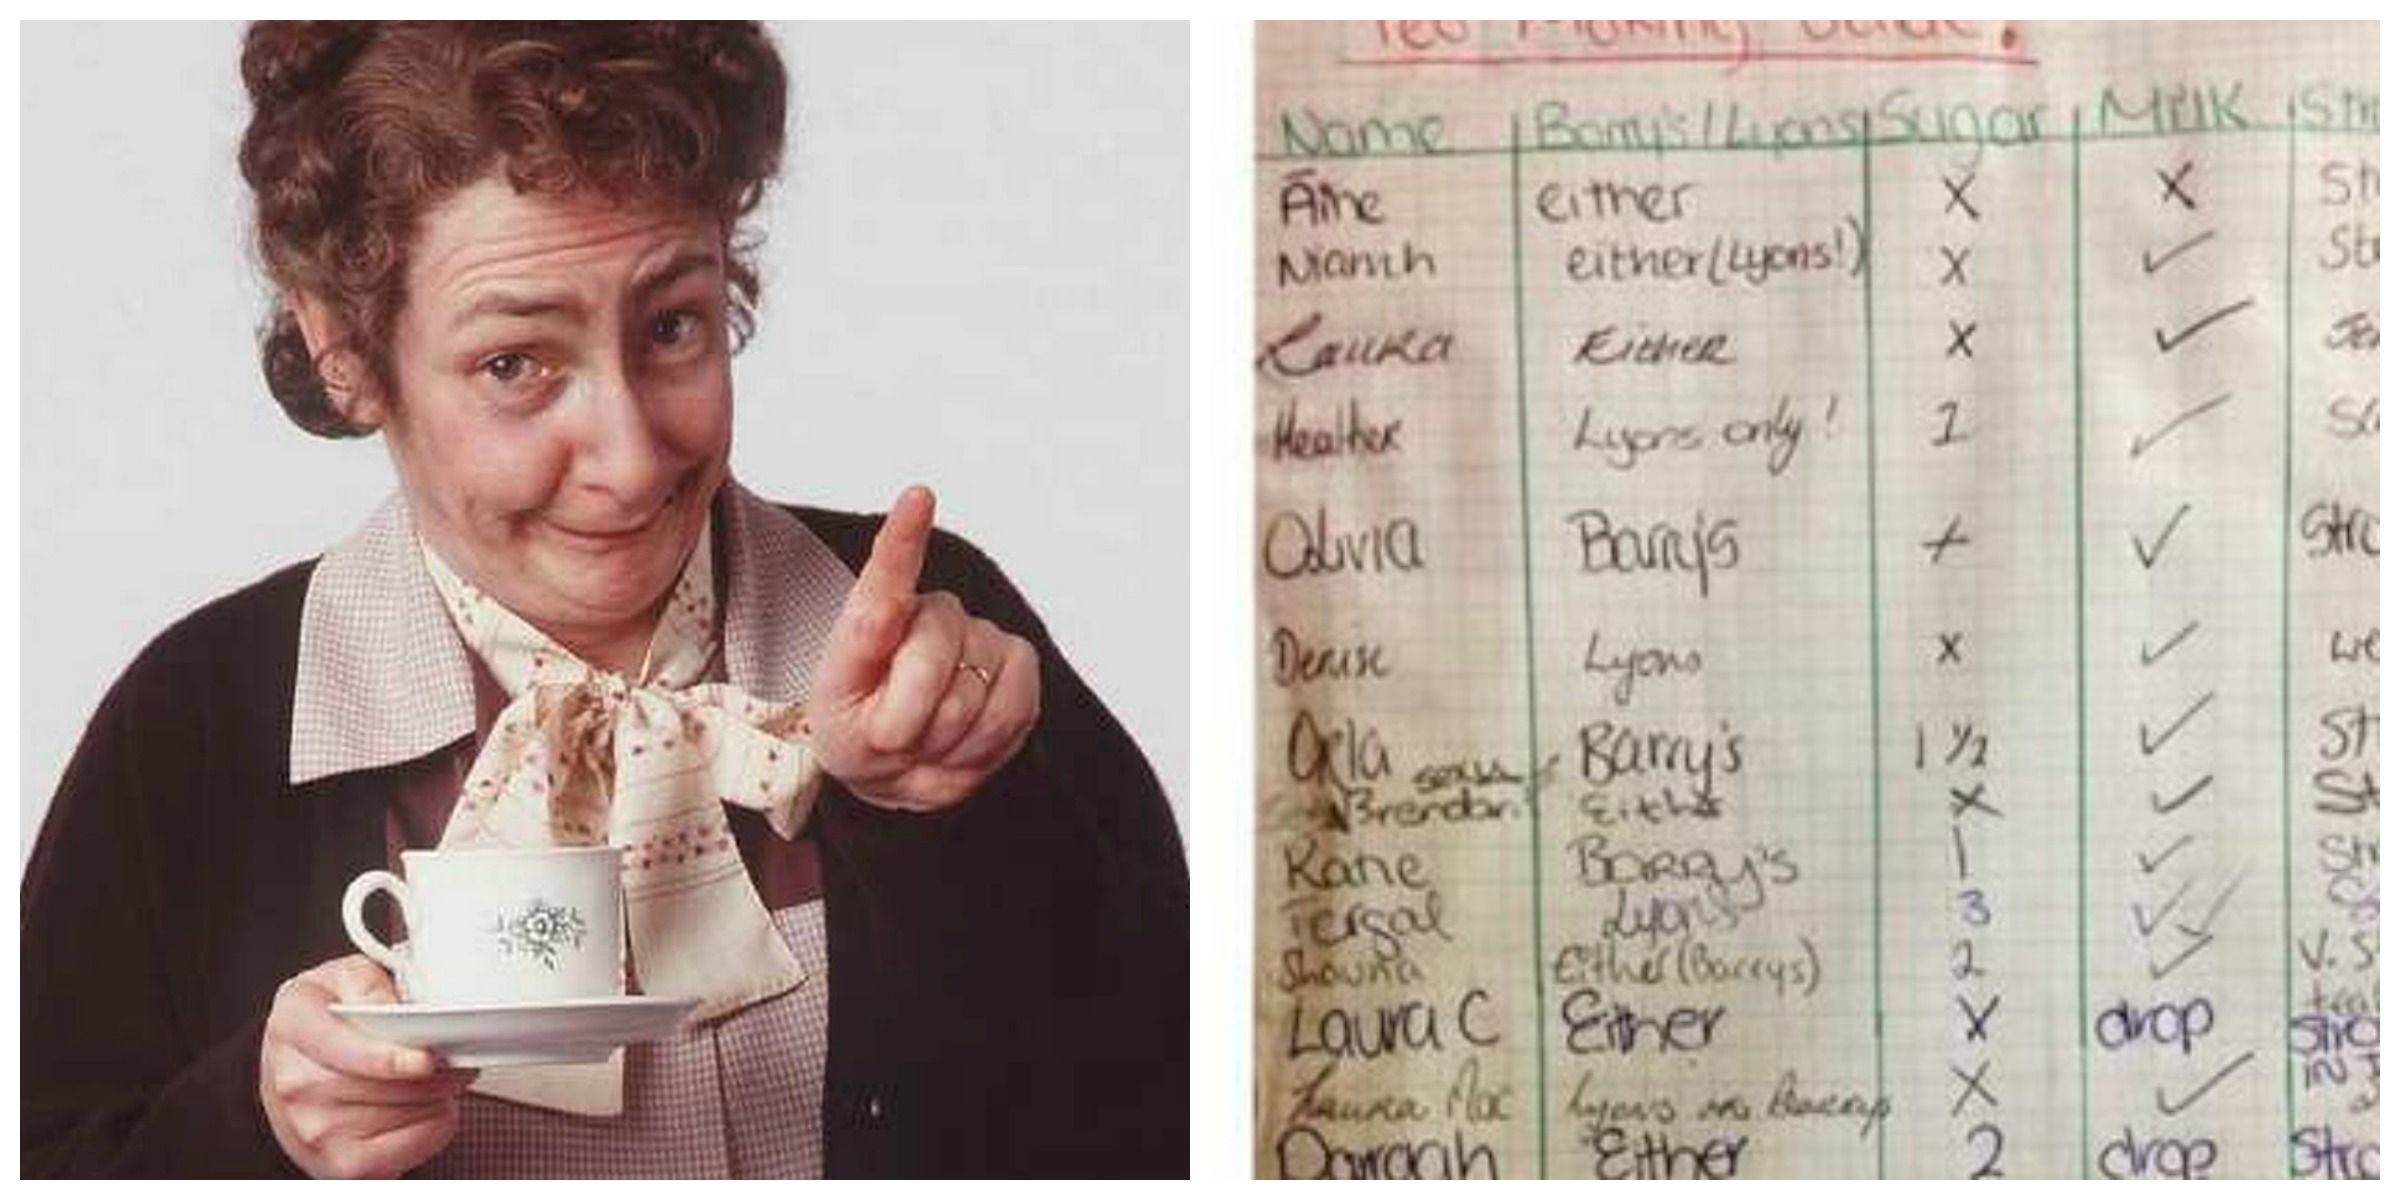 Tea Making Guide!
Name Barry's/Lyons Sugar Milk
Áine either X X
Niamh either (Lyons!) X ✓
Laura Either X ✓
Heather Lyons only! 1 ✓
Olivia Barry's X ✓
Denise Lyons x ✓
Orla Barry's 1 ½ ✓
Brendan Either X ✓
Kane Barry's 1 ✓
Fergal Lyons 3 ✓ ✓
Shauna Either (Barrys) 2 ✓ V.
Laura C Either X drop
Laura Mac Lyons no Barrys X ✓
Darragh Either 2 drop